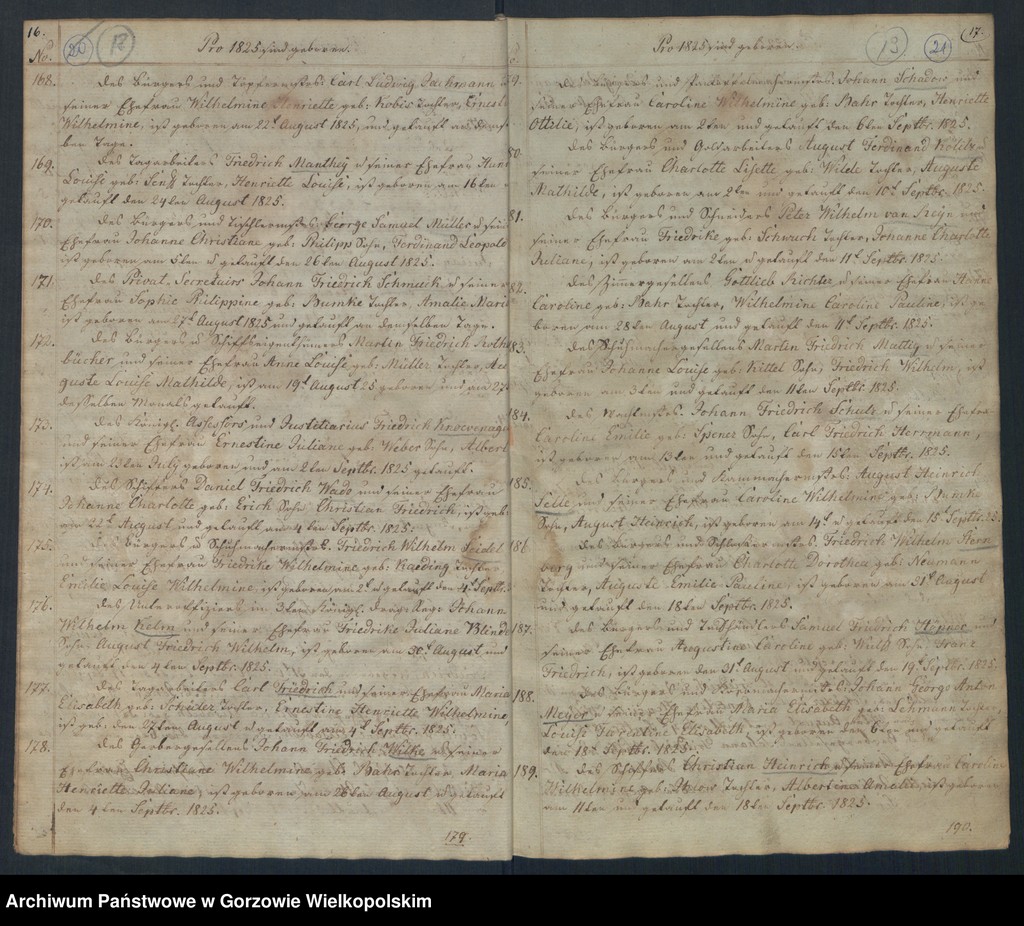 16.
20
12
No.
Pro 1825 sind geboren.
168. Des Bürgers und Töpfermstrs: Carl Ludwig
seiner Ehefrau Wilhelmine Henriette geb: Tochter, Ernest.
Wilhelmine, ist geboren am 22t August 1825, und getauft an dems-
ben Tage.
169. Des Tagarbeiters Friedrich Manthey u seiner Ehefrau
Louise geb: Tochter, Henriette Louise, ist geboren am 16ten
getauft den 24ten August 1825.
170. Des Bürgers und Tischlermstrs: George Samuel Müller u
Ehefrau Johanne Christiane geb: Philipp Sohn, Ferdinand Leopold
ist geboren am 5ten u getauft den 26ten August 1825.
171. Des Privat, Secretairs Johann Friedrich Schmuck u seiner
Ehefrau Sophie Philippine geb: Bumke Tochter, Amalie Marie
ist geboren am 27t August 1825 und getauft an demselben Tage.
172. Des Bürgers u Schiffseigenthümers Martin Friedrich Roth-
bücher und seiner Ehefrau Anne Louise, geb: Müller Tochter, Au-
guste Louise Mathilde, ist am 19t August 25 geboren und am 27
desselben Monats getauft.
173. Des Königl. Assessors und Justitiarius Friedrich
und seiner Ehefrau Ernestine Juliane geb: Weber Sohn, Albert
ist am 23ten July geboren und am 2ten Septbr. 1825 getauft.
174. Des Schiffers Daniel Friedrich Wado und seiner Ehefrau
Johanne Charlotte geb: Erich Sohn, Christian Friedrich, ist geb:
22t August und getauft am 4ten Septbr. 1825.
175. Des Bürgers u Schuhmachermstrs. Friedrich Wilhelm Seidel
und seiner Ehefrau Friedrike Wilhelmine geb: Kaeding Tochter
Emilie Louise Wilhelmine, ist geboren am 2t u getauft den 4t Septbr.
176. Des Unteroffiziers im 3ten Königl. Drag: Reg: Johann
Wilhelm Kelm und seiner Ehefrau Friedrike Juliane
Sohn August Friedrich Wilhelm, ist geboren am 30t August und
getauft den 4ten Septbr. 1825.
177. Des Tagarbeiters Carl Friedrich und seiner Ehefrau Maria
Elisabeth geb: Scheider Tochter, Ernestine Henriette Wilhelmine
ist geb: den 27ten August u getauft am 4t Septbr. 1825.
178. Des Gerbergesellens Johann Friedrich Wilke u seiner
Ehefrau Christiane Wilhelmine geb: Bahr Tochter, Maria
Henriette Juliane, ist geboren am 26ten August u getauft
den 4ten Septbr. 1825.
179.
17.
13
21
Pro 1825 sind geboren.
9. Des Bürgers und Johann Schadow und
seiner Ehefrau Caroline Wilhelmine geb: Bahr Tochter, Henriette
Ottilie, ist geboren am 2ten und getauft den 6ten Septbr. 1825.
80. Des Bürgers und Goldarbeiters August Ferdinand
seiner Ehefrau Charlotte Lisette geb: Wilde Tochter, Auguste
Mathilde, ist geboren am 2ten und getauft den 10t Septbr. 1825.
81. Des Bürgers und Schneiders Peter Wilhelm van Reijn und
seiner Ehefrau Friedrike geb: Schwach Tochter, Johanne Charlotte
Juliane, ist geboren am 2ten u getauft den 11t Septbr. 1825.
82. Des Zimmergesellens Gottlieb Richter, u seiner Ehefrau Hanne
Caroline geb: Bahr Tochter, Wilhelmine Caroline Pauline, ist ge-
boren am 28ten August und getauft den 11t Septbr. 1825.
83. Des Schuhmachergesellens Martin Friedrich Mattig u seiner
Ehefrau Johanne Louise geb: Kittel Sohn, Friedrich Wilhelm, ist
geboren am 3ten und getauft den 11ten Septbr. 1825.
184. Des Johann Friedrich Schulz u seiner Ehefr:
Caroline Emilie geb: Spener Sohn, Carl Friedrich Herrmann,
ist geboren am 13ten und getauft den 15ten Septbr. 1825.
185. Des Bürgers und Kammachermstrs: August Heinrich
Selle und seiner Ehefrau Caroline Wilhelmine geb: Bumke
Sohn, August Heinrich, ist geboren am 14t u getauft den 15t Septbr. 25.
186. Des Bürgers und Schlossermstrs. Friedrich Wilhelm Stern
burg und seiner Ehefrau Charlotte Dorothea geb: Neumann
Tochter, Auguste Emilie Pauline, ist geboren am 31t August
und getauft den 18ten Septbr. 1825.
187. Des Bürgers und Tuchhändlers Samuel Friedrich Höpner und
seiner Ehefrau Augustine Caroline geb: Wulf Sohn, Franz
Friedrich, ist geboren den 31t August und getauft den 19t Septbr. 1825.
188. Des Bürgers und Johann George Anton
Meyer u seiner Ehefrau Maria Elisabeth geb: Lehmann Tochter,
Louise Elisabeth, ist geboren den 6ten und getauft
den 18t Septbr. 1825.
189. Des Schiffers Christian Heinrich u seiner Ehefrau Caroline
Wilhelmine geb: Tochter, Albertine Amalie, ist geboren
am 11ten und getauft den 18ten Septbr. 1825.
190.
Archiwum Państwowe w Gorzowie Wielkopolskim